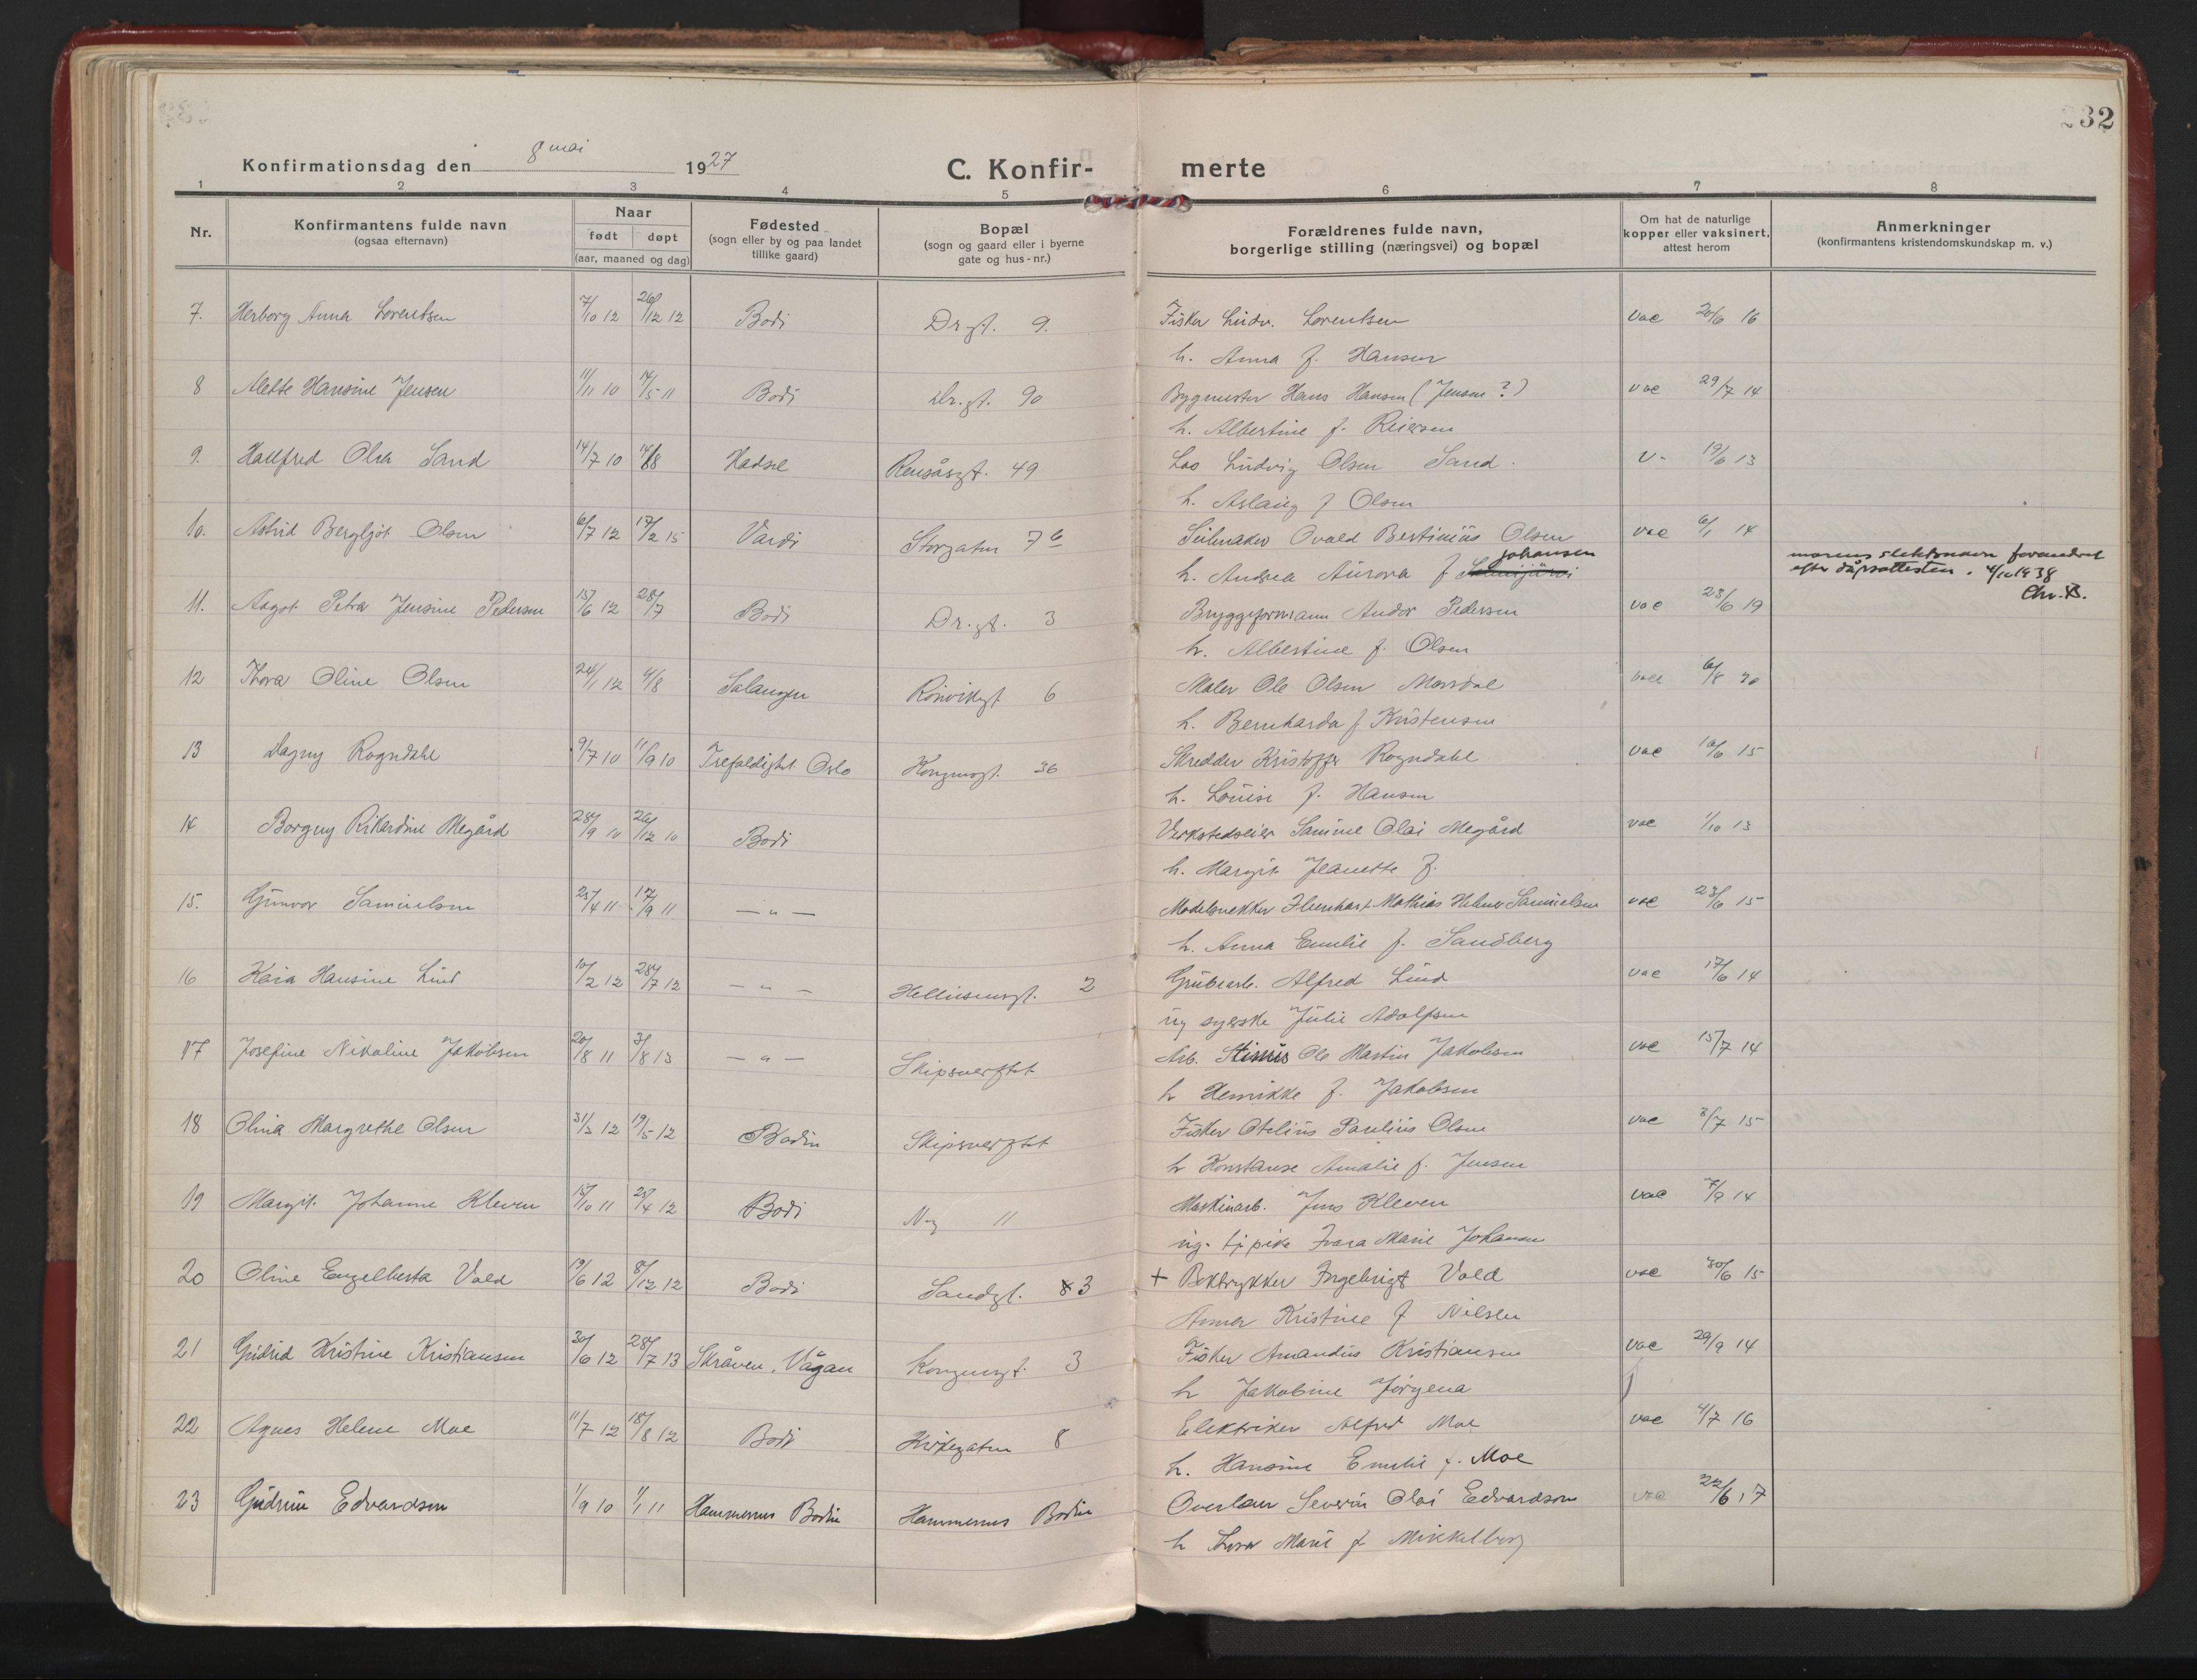 232
Konfirmationsdag den 8 mai 1927 C. Konfir- merte
1 2 3 4 5 6 7 8
Nr. Konfirmantens fulde navn (ogsaa efternavn) Naar født døpt (aar, maaned og dag) Fødested (sogn eller by og paa landet tillike gaard) Bopæl (sogn og gaard eller i byerne gate og hus-nr.) Forældrenes fulde navn, borgerlige stilling (næringsvei) og bopæl Om hat de naturlige kopper eller vaksinert, attest herom Anmerkninger (konfirmantens kristendomskundskap m. v.)
7. Herborg Anna Lorentsen 7/10 12 26/12 12 Bodø Dr.gt. 9. Fisker Ludv. Lorentsen vac 20/6 16
h. Anna f. Hansen
8 Alette Hansine Jensen 11/11 10 14/5 11 Bodø Dr.gt. 90 Bygmester Hans Hansen (Jensen?) vac 29/7 14
h. Albertine f. Reiersen
9. Hallfred Olea Sand 14/7 10 14/8 Hadsel Rensåsgt. 49 Los Ludvig Olsen Sand. v- 19/6 13
h. Aslaug f Olsen
10. Astrid Bergljot Olsen 6/7 12 17/2 15 Vardø Storgaten 7 b Osvald Bertinius Olsen vac 6/1 14
h. Andrea Aurora f Johansen morens slektsnavn forandret
efter dåpsattesten. 4/10 1938
Chr. B.
11. Aagot Petra Jensine Pedersen 15/6 12 28/7 Bodø Dr.gt. 3 Bryggeformann Andor Pedersen vac 23/6 19
h. Albertine f. Olsen
12 Thora Oline Olsen 24/1 12 4/8 Salangen Rønvikgt 6 Maler Ole Olsen vac 6/8 20
h. Bernharda f Kristensen
13 Dagny Rogndahl 9/7 10 11/9 10 Trefoldight. Oslo Kongensgt. 36 Skredder Kristoffer Rogndahl vac 10/6 15
h. Louise f. Hansen
14 Borgny Rikardine Megård 28/9 10 26/12 10 Bodø Verkstedseier Olai Megård vac 1/10 13
h. Margit Jeanette f.
15. Gunvor Samuelsen 25/4 11 17/9 11 — " — Modelsnekker Eberhart Mathias Helmer Samuelsen vac 23/6 15
h. Anna Emilie f. Sandberg
16 Kaia Hansine Lind 10/2 12 28/7 12 — " — Hellusensgt. 2 Grubearb. Alfred Lind vac 17/6 14
ug syerske Julie Adolfsen
17 Josefine Nikoline Jakobsen 20/8 11 3/8 13 — " — Skipsverftet Arb. Ole Martin Jakobsen vac 15/7 14
h Henrikke f. Jakobsen
18 Olina Margrethe Olsen 31/3 12 19/5 12 Bodin Skipsverftet Fisker Otelius Paulius Olsen vac 8/7 15
h Konstanse Amalie f. Jensen
19 Margit Johanne Kleven 15/10 11 25/4 12 Bodø 11 Maskinarb. Jens Kleven vac 7/9 14
ug. tj. pike Ivara Marie Johansen
20 Oline Engelberta Vold 19/6 12 8/12 12 Bodø Sandgt. 3 + Boktrykker Ingebrigt Vold vac 30/6 15
Anna Kristine f Nilsen
21 Gudrid Kristine Kristiansen 30/6 12 28/7 13 Skråven, Vågan Kongensgt. 3 Fisker Amandus Kristiansen vac 29/9 14
h Jakobine Jørgena
22 Agnes Helene Moe 11/7 12 18/8 12 Bodø Kirkegaten 8 Elektriker Alfred Moe vac 4/7 16
h. Hansine Emilie f. Moe
23 Gudrun Edvardsen 1/9 10 1/1 11 Hammernes Bodin Hammernes Bodin Overlær Severin Olai Edvardsen vac 22/6 17
h Thora Marie f Mikkelborg